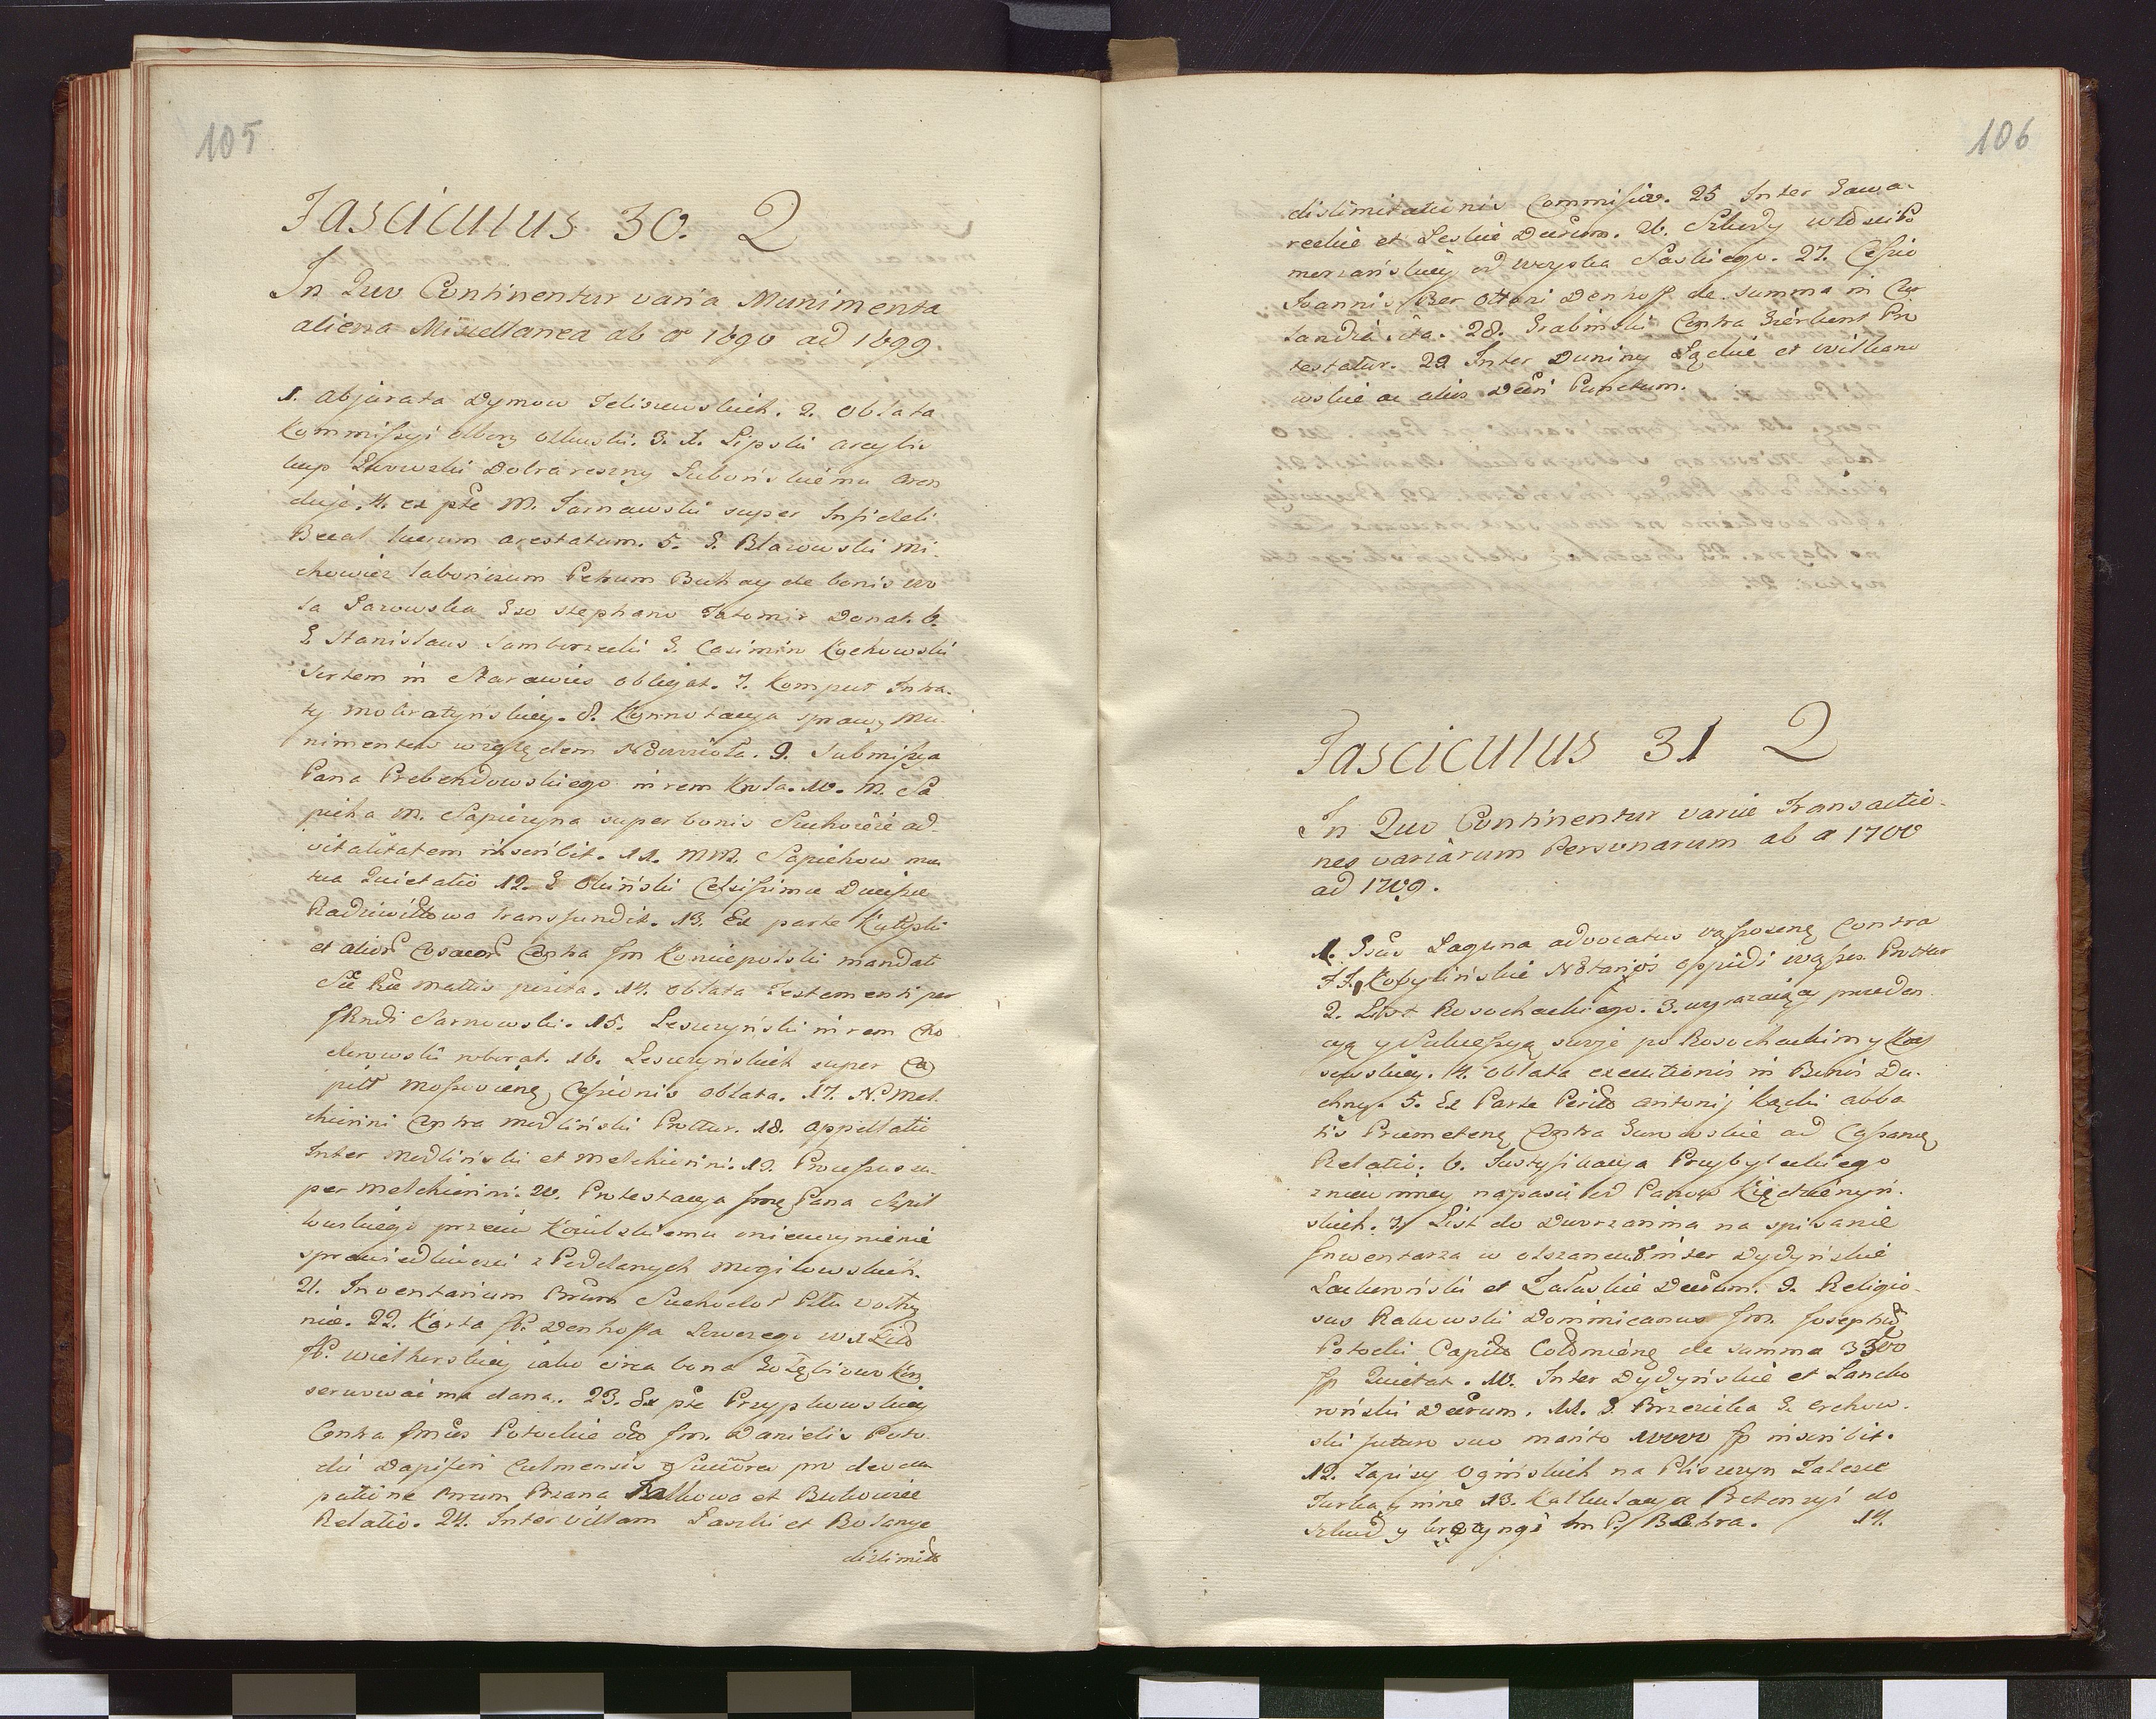 105
Fasciculus 30. 2
In Quo Continentur varia Munimenta
aliena Miscellanea ab a° 1690 ad 1699.
1. Abjurata Dymow Teliszewskich. 2. Oblata
Kommissyi olbory olkuski. 3. X. Lipski arcybis
kup Lwowski Dobra reszny Lubonskiemu aren
duje. 4. ex pte M. Tarnawski super Infideli
Becal lucrum arestatum. 5. G. Blazowski mi
chowicz laboriosum Petrum Buhay de bonis wo
la Jazowska Gso Stephano Tatomir Donat. 6.
G. Stanislaus Samborzecki G. Casimiro Kochowski
Sortem in Starawies obligat. 7. Komput Intra-
ty mokratynskiey. 8. Konnotacya spraw, Mu-
nimentow względem
Pana Prebendowskiego in rem Krola. 10. M. Sa
pieha M. Sapiezyna super bonis Suchowcze ad-
vitalitatem inscribit. 11. MM. Sapiehow mu
tua Quietatio 12. G Okinski Celsissimae Ducissae
Radziwiłłowa transfundit. 13. Ex parte
et alior Cosacor Contra Jm Koniecpolski mandati
Sae Rae Mattis positа. 14. Oblata Testamenti per
JRndi Sarnowski. 15. Leszczyński in rem Cho
derowski roborat. 16. Leszczynskich super Ca
pitt Mossoviens, Cessionis oblata. 17. N. Mel
chiorini Contra Medlinski Prottur. 18. Appellatio
Inter Medlinski et Melchiorini. 19. Processus su-
per Melchiorini. 20. Protestacya Jmę Pana Szpil
kowskiego przeciw Kozubskiemu o nieuczynienie
sprawiedliwosci z Poddanych Mogilowskich.
21. Inventarium Bonrum Suchodol Ptłu Wolhy
nie. 22. Karta JP. Denhoffa
JP. Wielhorskiey iako circa bona Gołębiow kon
serwowac ma dana. 23. Ex pte Przypkowskiey
Contra Jmćes Potockie olo Jm. Danielis Poto-
cki Dapiferi Culmensis Succores pro devecu
patione Bnrum Brzana Falkowa et Bukowiec
Relatio. 24. Inter villam Laszki et Bolanye
dislimita
106
dislimitationis Commissio. 25 Inter Gawa-
reckie et Leskie Decrum. 26. Szkody wlosci Po
morzanskiey od woyska Saskiego. 27. Cessio
Joannis Ber Ottoni Denhoff de summa in Cur
landia ita. 28. Grabinski Contra Gierburt Pro
testatur. 29 Inter Duniny Łąckie et Wilkano
wskie ac alios Decri Punctum.
Fasciculus 31 2
In Quo Continentur variae Transactio-
nes variarum Personarum ab a 1700
ad 1709.
1. Gsus Laguna advocatus vąssoseng Contra
JJ. Kobylinskie Notarios oppidi wąsos. Prottur
2. List Rosochackiego. 3. wyrazaiący preeden
cyą y Sukcessyą swoje po Rosochackim y Kos
sowskiey. 4. Oblata executionis in Bonis Du-
chny. 5. Ex Parte Perillo Antonij Kącki abba
tis Premeteng Contra Gurowskie ad
Relatio. 6. Justyfikacya Przybyleckiego
z niewinney napasci od Panow Kiędzienyn-
skich. 7. List do Dworzanina na spisanie
Inwentarza w olszanach 8 inter Dydyńskie
Lanckoronski et Załuskie Decrum. 9. Religio-
sus Rakowski Dominicanus Jm. Josephus
Potocki Capito Colomieng de summa 3500
fp Quietat. 10. Inter Dydyńskie et Lancko
roński Decrum. 11. G. Brzezicka G. Erchow-
ski futuro suo marito 10000 fp inscribit.
12. Zapisy Oginskich na Pliszczyn Zalesie
Turka y inne 13. Kalkulacya Pretensyi do
szkod y Jm P. Bekra. 14.